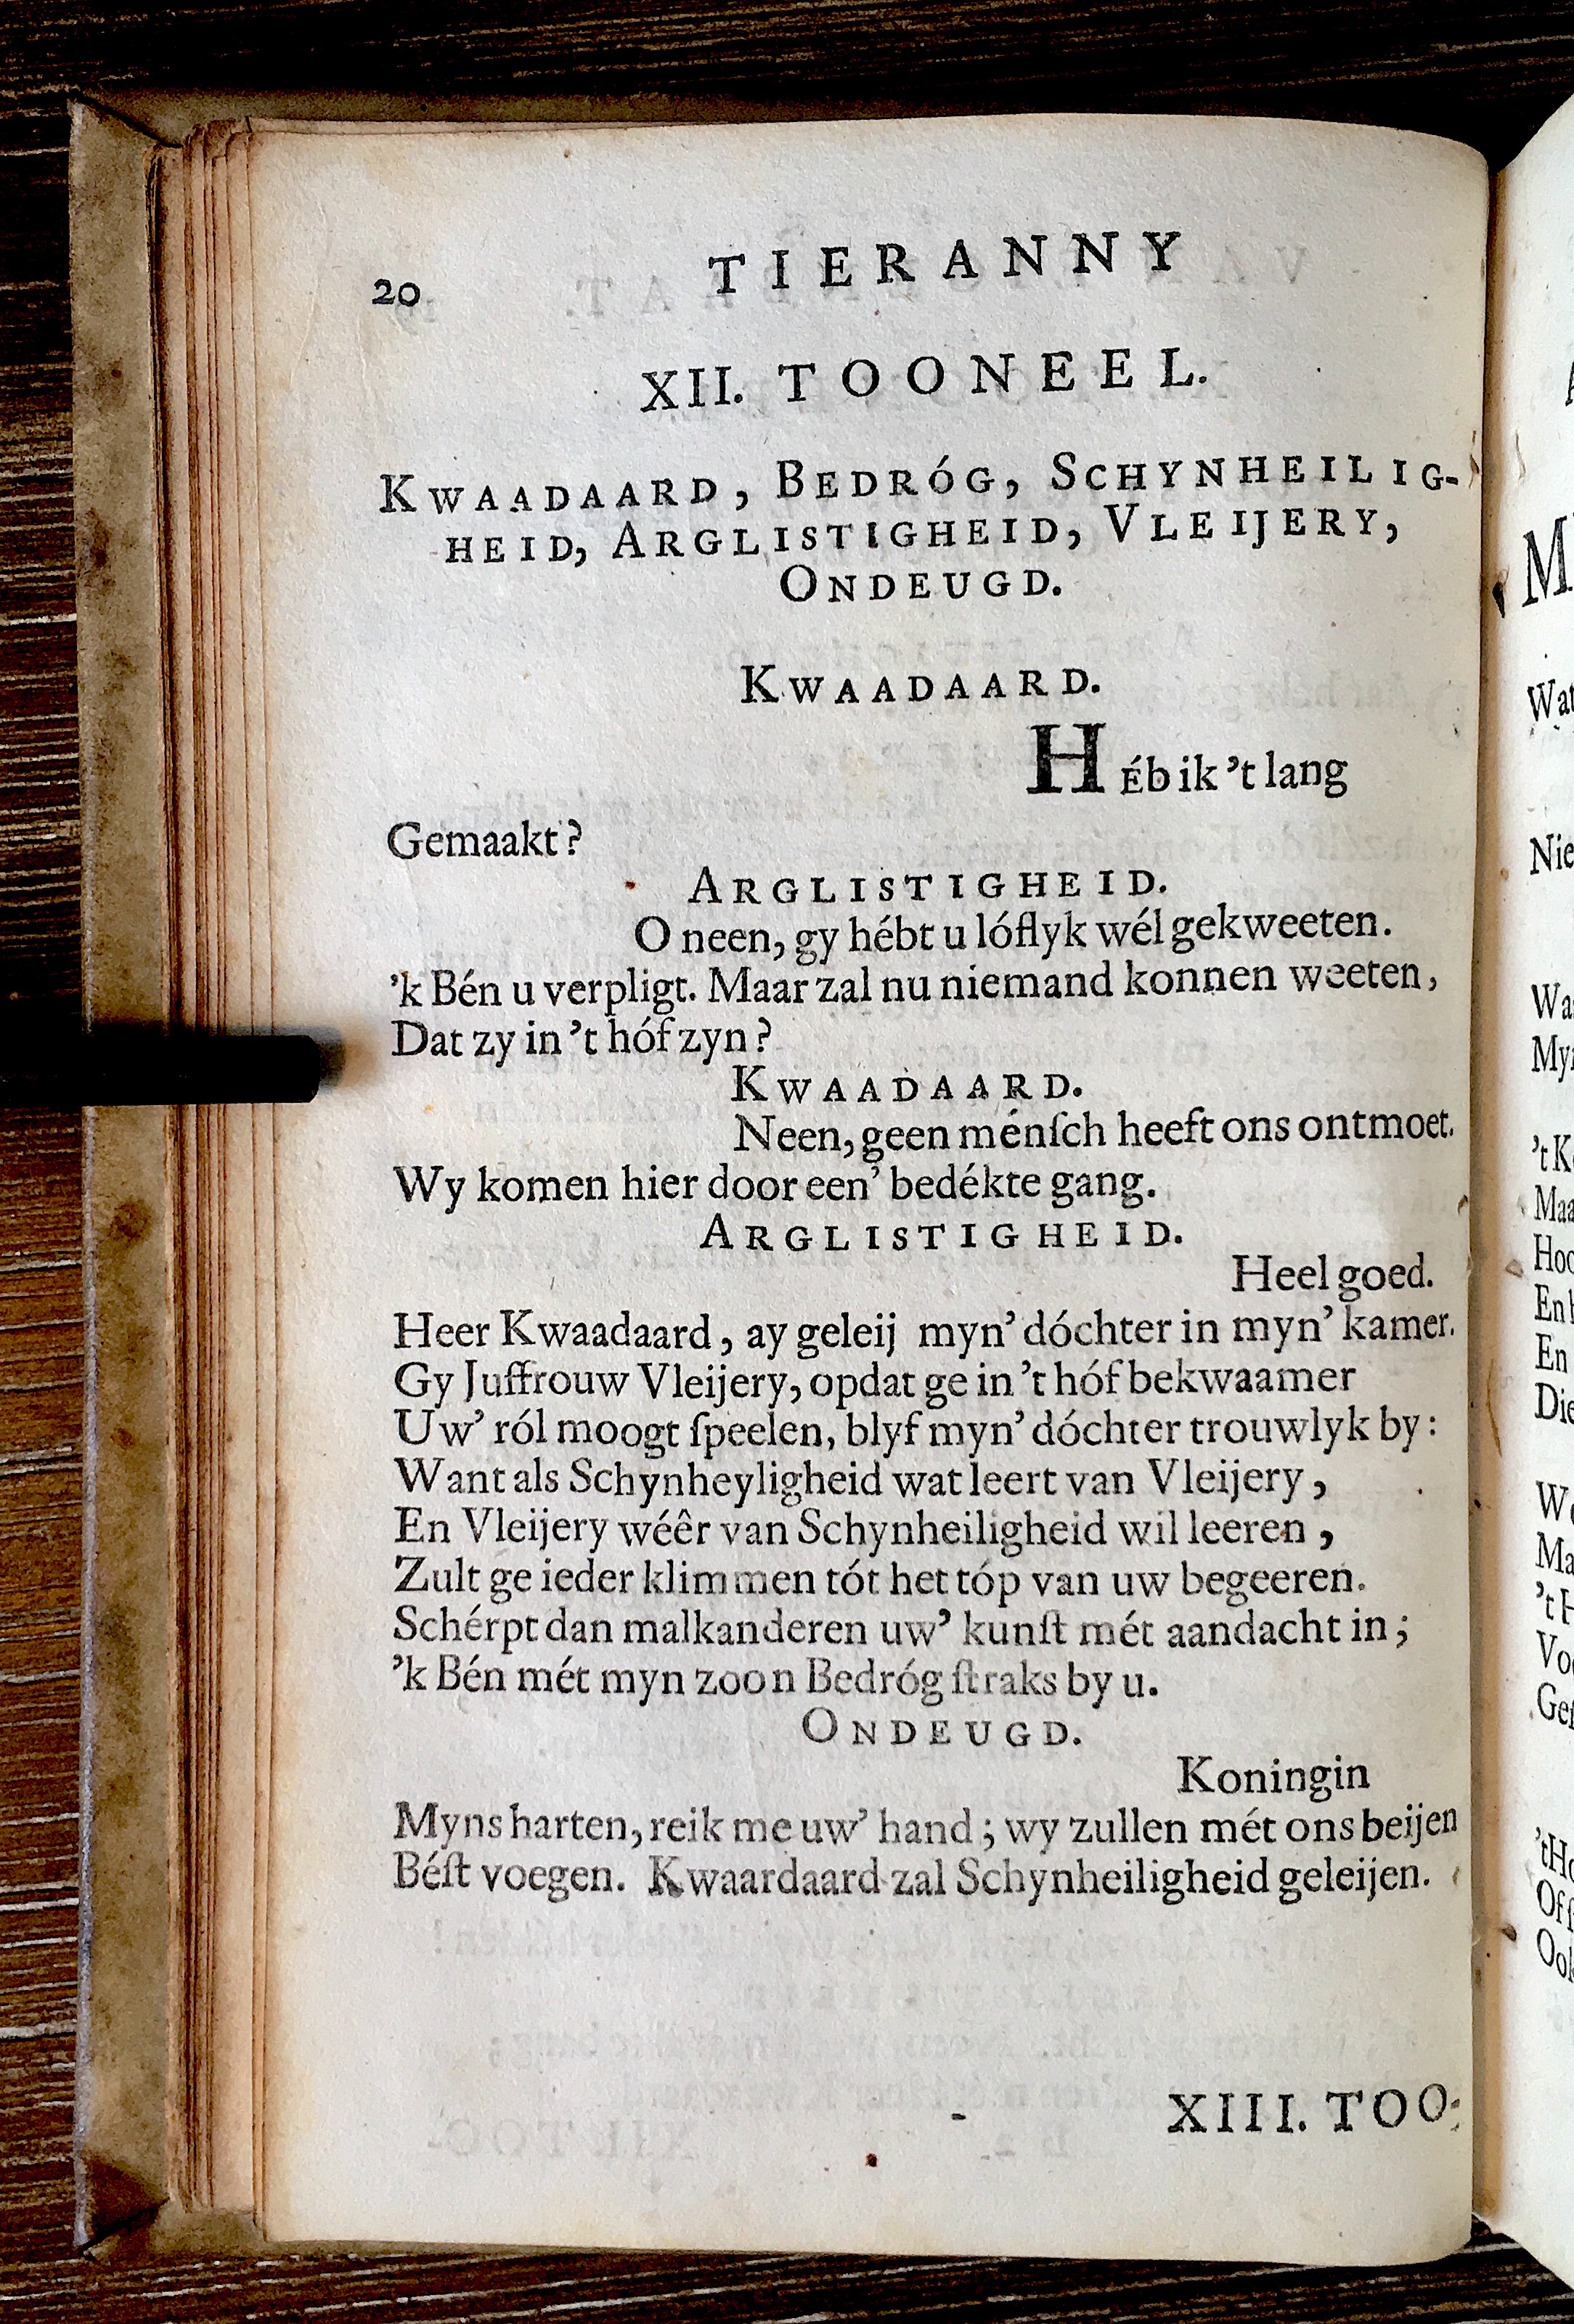 20 TIERANNY
XII. TOONEEL.
KWAADAARD, BEDRÓG, SCHYNHEILIG-
HEID, ARGLISTIGHEID, VLEIJERY,
ONDEUGD.
KWAADAARD.
HÉb ik ’t lang
Gemaakt?
ARGLISTIGHEID.
O neen, gy hébt u lóflyk wél gekweeten.
’k Bén u verpligt. Maar zal nu niemand konnen weeten,
Dat zy in ’t hóf zyn?
KWAADAARD.
Neen, geen ménſch heeft ons ontmoet.
Wy komen hier door een’ bedékte gang.
ARGLISTIGHEID.
Heel goed.
Heer Kwaadaard, ay geleij myn’ dóchter in myn’ kamer.
Gy Juffrouw Vleijery, opdat ge in ’t hóf bekwaamer
Uw’ ról moogt ſpeelen, blyf myn’ dóchter trouwlyk by:
Want als Schynheyligheid wat leert van Vleijery,
En Vleijery wéêr van Schynheiligheid wil leeren,
Zult ge ieder klimmen tót het tóp van uw begeeren.
Schérpt dan malkanderen uw’ kunſt mét aandacht in;
’k Bén mét myn zoon Bedróg ſtraks by u.
ONDEUGD.
Koningin
Myns harten, reik me uw’ hand; wy zullen mét ons beijen
Béſt voegen. Kwaardaard zal Schynheiligheid geleijen.
XIII. TOO-
Wat
Nie
Maa
Hoo
En
Die
Ma